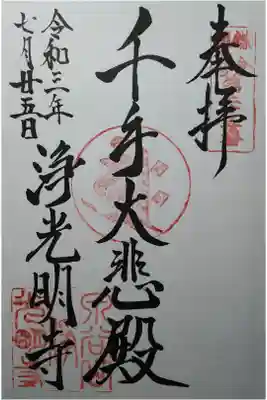 奉拝
千手大悲殿
浄光明寺
令和三年
七月廿五日